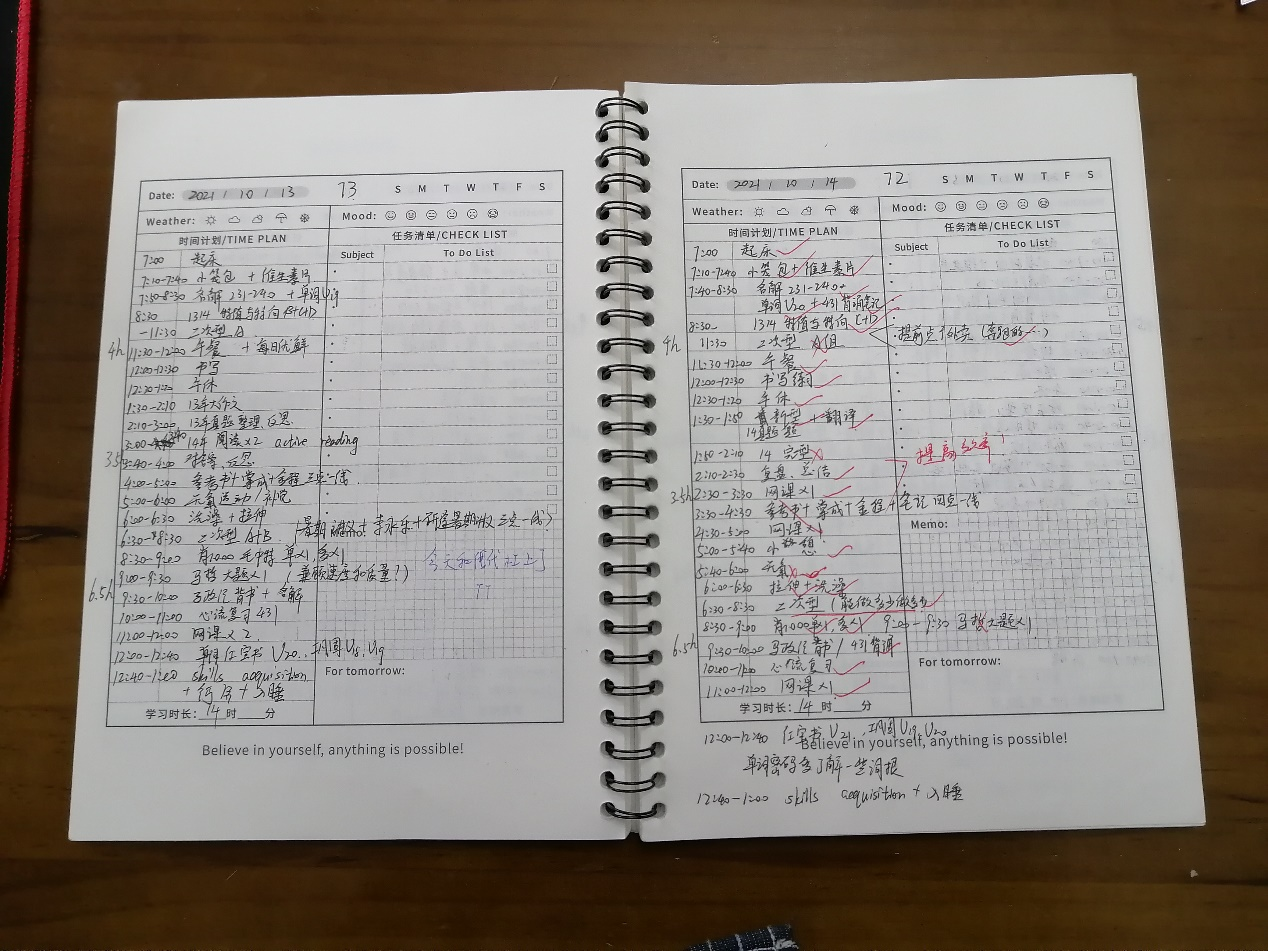 Date: 2021 / 10 / 13 73 S M T W T F S
Weather: Mood:
时间计划/TIME PLAN 任务清单/CHECK LIST
Subject To Do List
7:00 起床
7:10-7:40 小笼包 + 维生素片
7:50-8:30 名解 231-240 + 单词U19
8:30 1314 特值与特向
-11:30 二次型 A
4h 11:30-12:00 午餐 + 每日优鲜
12:00-12:30 书写
12:30-1:20 午休
1:30-2:10 13年大作文
2:10-3:00 13年真题整理、反思
3:00- 14年 阅读x2 active reading
3:40-4:00 反思
4:00-5:00 参考书+掌成+金程 三点一线
5:00-6:00 元氧运动/补觉
6:00-6:30 洗澡 + 拉伸
6:30-8:30 二次型 A+B
Memo:
8:30-9:00 肖1000 毛中特 单x1 多x1
今天和现代
9:00-9:30 马哲大题x1 (兼顾速度和质量?)
6.5h 9:30-10:00 背书 + 名解
10:00-11:00 心流复习 431
11:00-12:00 网课 x 2
12:00-12:40 单词红宝书 U20, U18, U19
12:40-1:00 skills acquisition
For tomorrow:
+ 入睡
学习时长: 14 时 分
Believe in yourself, anything is possible!
Date: 2021 / 10 / 14 72 S M T W T F S
Weather: Mood:
时间计划/TIME PLAN 任务清单/CHECK LIST
Subject To Do List
7:00 起床
7:10-7:40 小笼包 + 维生素片
7:40-8:30 名解 231-240+
单词U20 + 431背诵笔记
8:30- 1314 特值与特向 C+D
4h 11:30 二次型 B组
提前点个外卖
11:30-12:00 午餐
12:00-12:30 书写练习
12:30-1:20 午休
1:30-1:50 新型 + 翻译
14真题
1:50-2:10 14 完型
提高效率!
2:10-2:30 复盘、总结
3.5h 2:30-3:30 网课x1
3:30-4:30 参考书+掌成+金程+笔记 四点一线
4:30-5:00 网课x1
Memo:
5:00-5:40 小憩
5:40-6:00 元氧
6:00-6:30 拉伸+洗澡
6:30-8:30 二次型 (能做多少做多少)
8:30-9:00 肖1000单x1,多x1 9:00-9:30 马哲大题x1
6.5h 9:30-10:00 背书 / 431背诵
10:00-11:00 心流复习
For tomorrow:
11:00-12:00 网课x1
学习时长: 14 时 分
12:00-12:40 红宝书 U21, U19, U20
Believe in yourself, anything is possible!
单词密码多了解一些词根
12:40-1:00 skills acquisition + 入睡